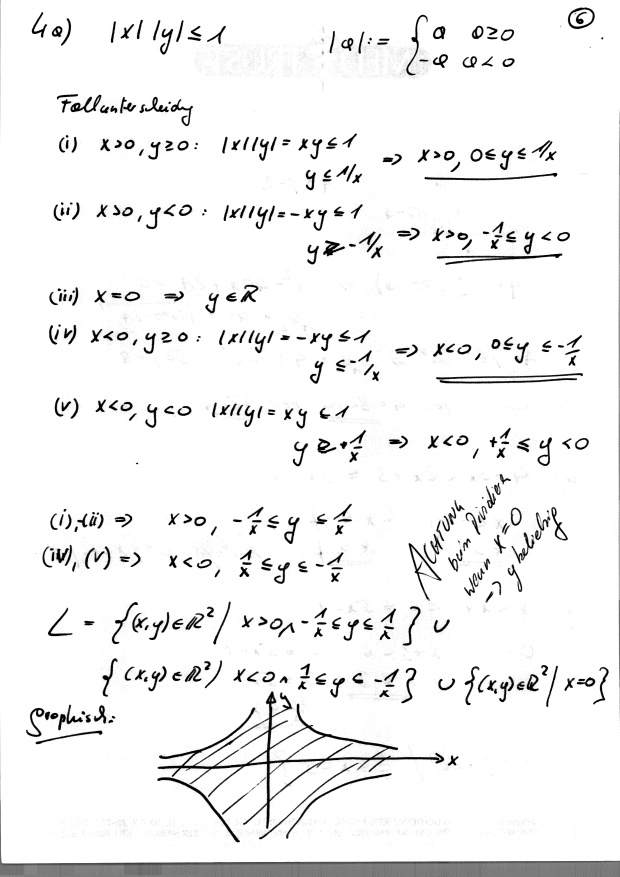 6
4a) |x| |y| ≤ 1 |a| := { a a≥0
-a a<0
Fallunterscheidung
(i) x>0, y≥0: |x||y| = xy ≤ 1
y ≤ 1/x ⇒ x>0, 0≤y≤1/x
(ii) x>0, y<0: |x||y| = -xy ≤ 1
y ≥ -1/x ⇒ x>0, -1/x ≤ y < 0
(iii) x=0 ⇒ y∈ℝ
(iv) x<0, y≥0: |x||y| = -xy ≤ 1
y ≤ -1/x ⇒ x<0, 0≤y ≤ -1/x
(v) x<0, y<0 |x||y| = xy ≤ 1
y ≥ +1/x ⇒ x<0, +1/x ≤ y < 0
ACHTUNG
beim Dividieren
wenn x=0
⇒ y beliebig
(i),(ii) ⇒ x>0, -1/x ≤ y ≤ 1/x
(iv), (v) ⇒ x<0, 1/x ≤ y ≤ -1/x
L = {(x,y)∈ℝ² | x>0 ∧ -1/x ≤ y ≤ 1/x} ∪
{(x,y)∈ℝ² | x<0 ∧ 1/x ≤ y ≤ -1/x} ∪ {(x,y)∈ℝ² | x=0}
graphisch:
y
x